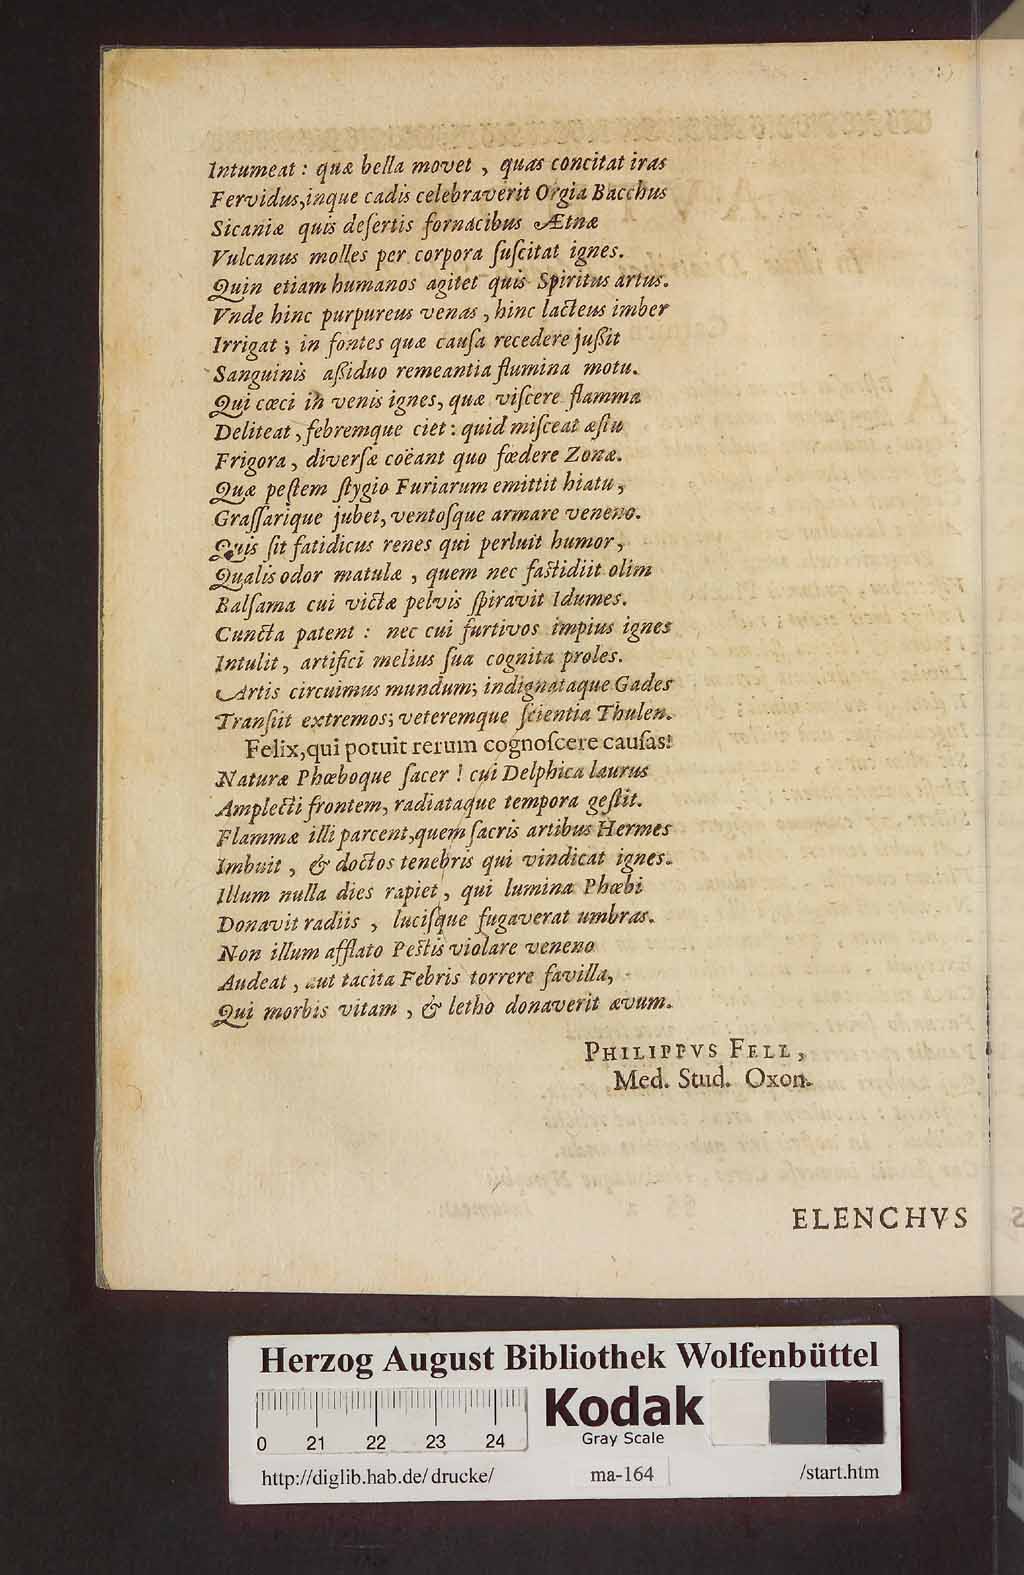 Intumeat : quæ bella movet , quas concitat iras
Fervidus,inque cadis celebraverit Orgia Bacchus
Sicaniæ quis deſertis fornacibus Ætnæ
Vulcanus molles per corpora ſuſcitat ignes.
Quin etiam humanos agitet quis Spiritus artus.
Vnde hinc purpureus venas , hinc lacteus imber
Irrigat ; in fontes quæ cauſa recedere juſſit
Sanguinis aſſiduo remeantia flumina motu.
Qui cœci in venis ignes, quæ viſcere flamma
Deliteat , febremque ciet : quid miſceat æſtu
Frigora , diverſæ coëant quo fœdere Zonæ.
Quæ peſtem ſtygio Furiarum emittit hiatu ,
Graſſarique jubet, ventoſque armare veneno.
Quis ſit fatidicus renes qui perluit humor ,
Qualis odor matulæ , quem nec faſtidiit olim
Balſama cui victæ pelvis ſpiravit Idumes.
Cuncta patent : nec cui furtivos impius ignes
Intulit , artifici melius ſua cognita proles.
Artis circuimus mundum; indignataque Gades
Tranſiit extremos; veteremque ſcientia Thulen.
Felix,qui potuit rerum cognoſcere cauſas!
Naturæ Phœboque ſacer ! cui Delphica laurus
Amplecti frontem, radiataque tempora geſtit.
Flammæ illi parcent,quem ſacris artibus Hermes
Imbuit , & doctos tenebris qui vindicat ignes.
Illum nulla dies rapiet , qui lumina Phœbi
Donavit radiis , luciſque fugaverat umbras.
Non illum afflato Peſtis violare veneno
Audeat , aut tacita Febris torrere favilla,
Qui morbis vitam , & letho donaverit ævum.
PHILIPPVS FELL ,
Med. Stud. Oxon.
ELENCHVS
Herzog August Bibliothek Wolfenbüttel
0 21 22 23 24
Kodak
Gray Scale
http://diglib.hab.de/drucke/ ma-164 /start.htm